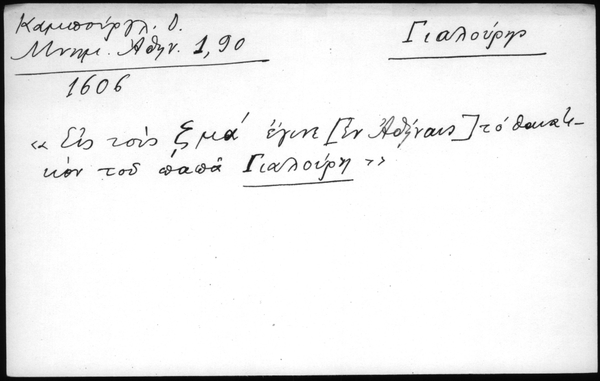 Καμπούρογλ. Δ.
Μνημ. Ἀθην. 1, 90
Γιαλούρης
1606
« Εἰς τοὺς ξμα' ἔγινε [ἐν Ἀθήναις] τὸ θανατι-
κὸν τοῦ παπᾶ Γιαλούρη »